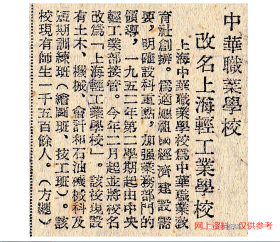 中華職業學校
改名上海輕工業學校
上海中華職業學校爲中華職業教
育社創辦。爲適應祖國經濟建設需
要，明確設科重點，加强業務部門的
領導，一九五二年第一學期起由中央
輕工業部接管。今年二月起並將校名
改爲「上海輕工業學校」。該校現設
有土木、機械、會計和石油機械科及
短期訓練班（繪圖班、技工班）。該
校現有師生一千五百餘人。（方
网上资料 仅供参考